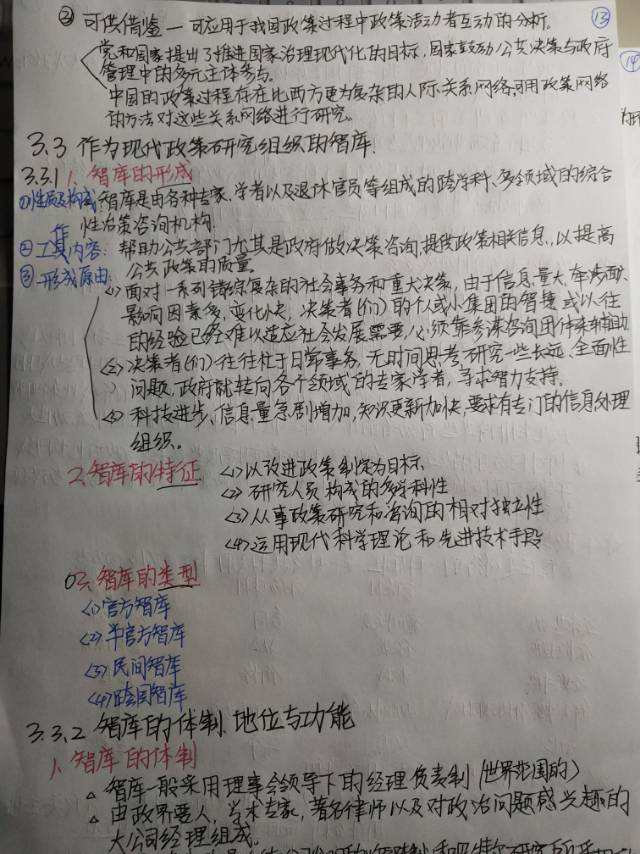 ⑬
② 可供借鉴 — 可应用于我国政策过程中政策活动者互动的分析.
党和国家提出了推进国家治理现代化的目标, 国家鼓励公共决策与政府
管理中的多元主体参与.
中国的政策过程存在比西方更为复杂的人际关系网络,可用政策网络
的方法对这些关系网络进行研究。
3.3 作为现代政策研究组织的智库.
3.3.1 1. 智库的形成
①性质及构成:智库是由各种专家、学者以及退休官员等组成的跨学科、多领域的综合
性政策咨询机构.
②工作内容: 帮助公共部门尤其是政府做决策咨询,提供政策相关信息,以提高
公共政策的质量.
③形成原由: <1>面对一系列错综复杂的社会事务和重大决策, 由于信息量大、牵涉面、
影响因素多, 变化快, 决策者(们)的个人或小集团的智慧或以往
的经验已经难以适应社会发展需要,必须靠参谋咨询团体来辅助
<2>决策者(们)往往忙于日常事务, 无时间思考研究一些长远、全面性
问题,政府就转向各个领域的专家学者, 寻求智力支持.
<3> 科技进步、信息量急剧增加,知识更新加快,要求有专门的信息处理
组织。
2. 智库的特征 <1>以改进政策制定为目标
<2>研究人员构成的多学科性
<3>从事政策研究和咨询的相对独立性
<4>运用现代科学理论和先进技术手段
03、智库的类型
<1>官方智库
<2>半官方智库
<3>民间智库
<4>跨国智库
3.3.2 智库的体制、地位与功能
1、智库的体制
△ 智库一般采用理事会领导下的经理负责制 (世界范围的)
△ 由政界要人, 学术专家, 著名律师以及对政治问题感兴趣的
大公司经理组成。